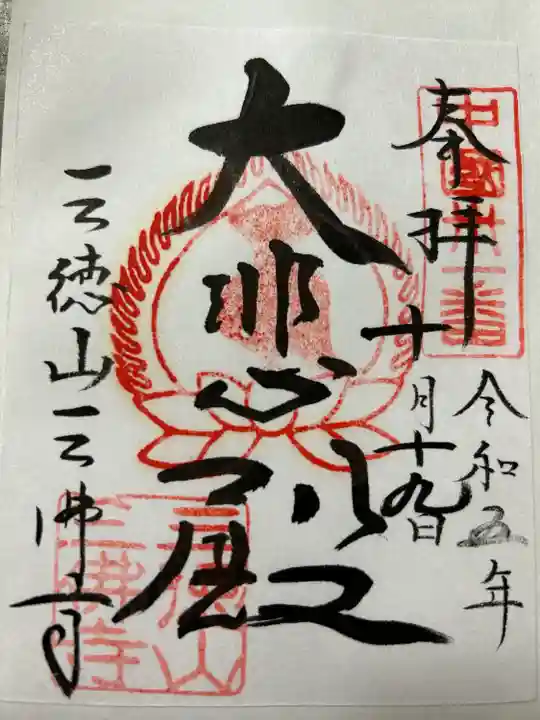 奉拝
令和五年
十月十九日
大悲殿
三徳山三佛寺
中國第一番
三徳山
三佛寺